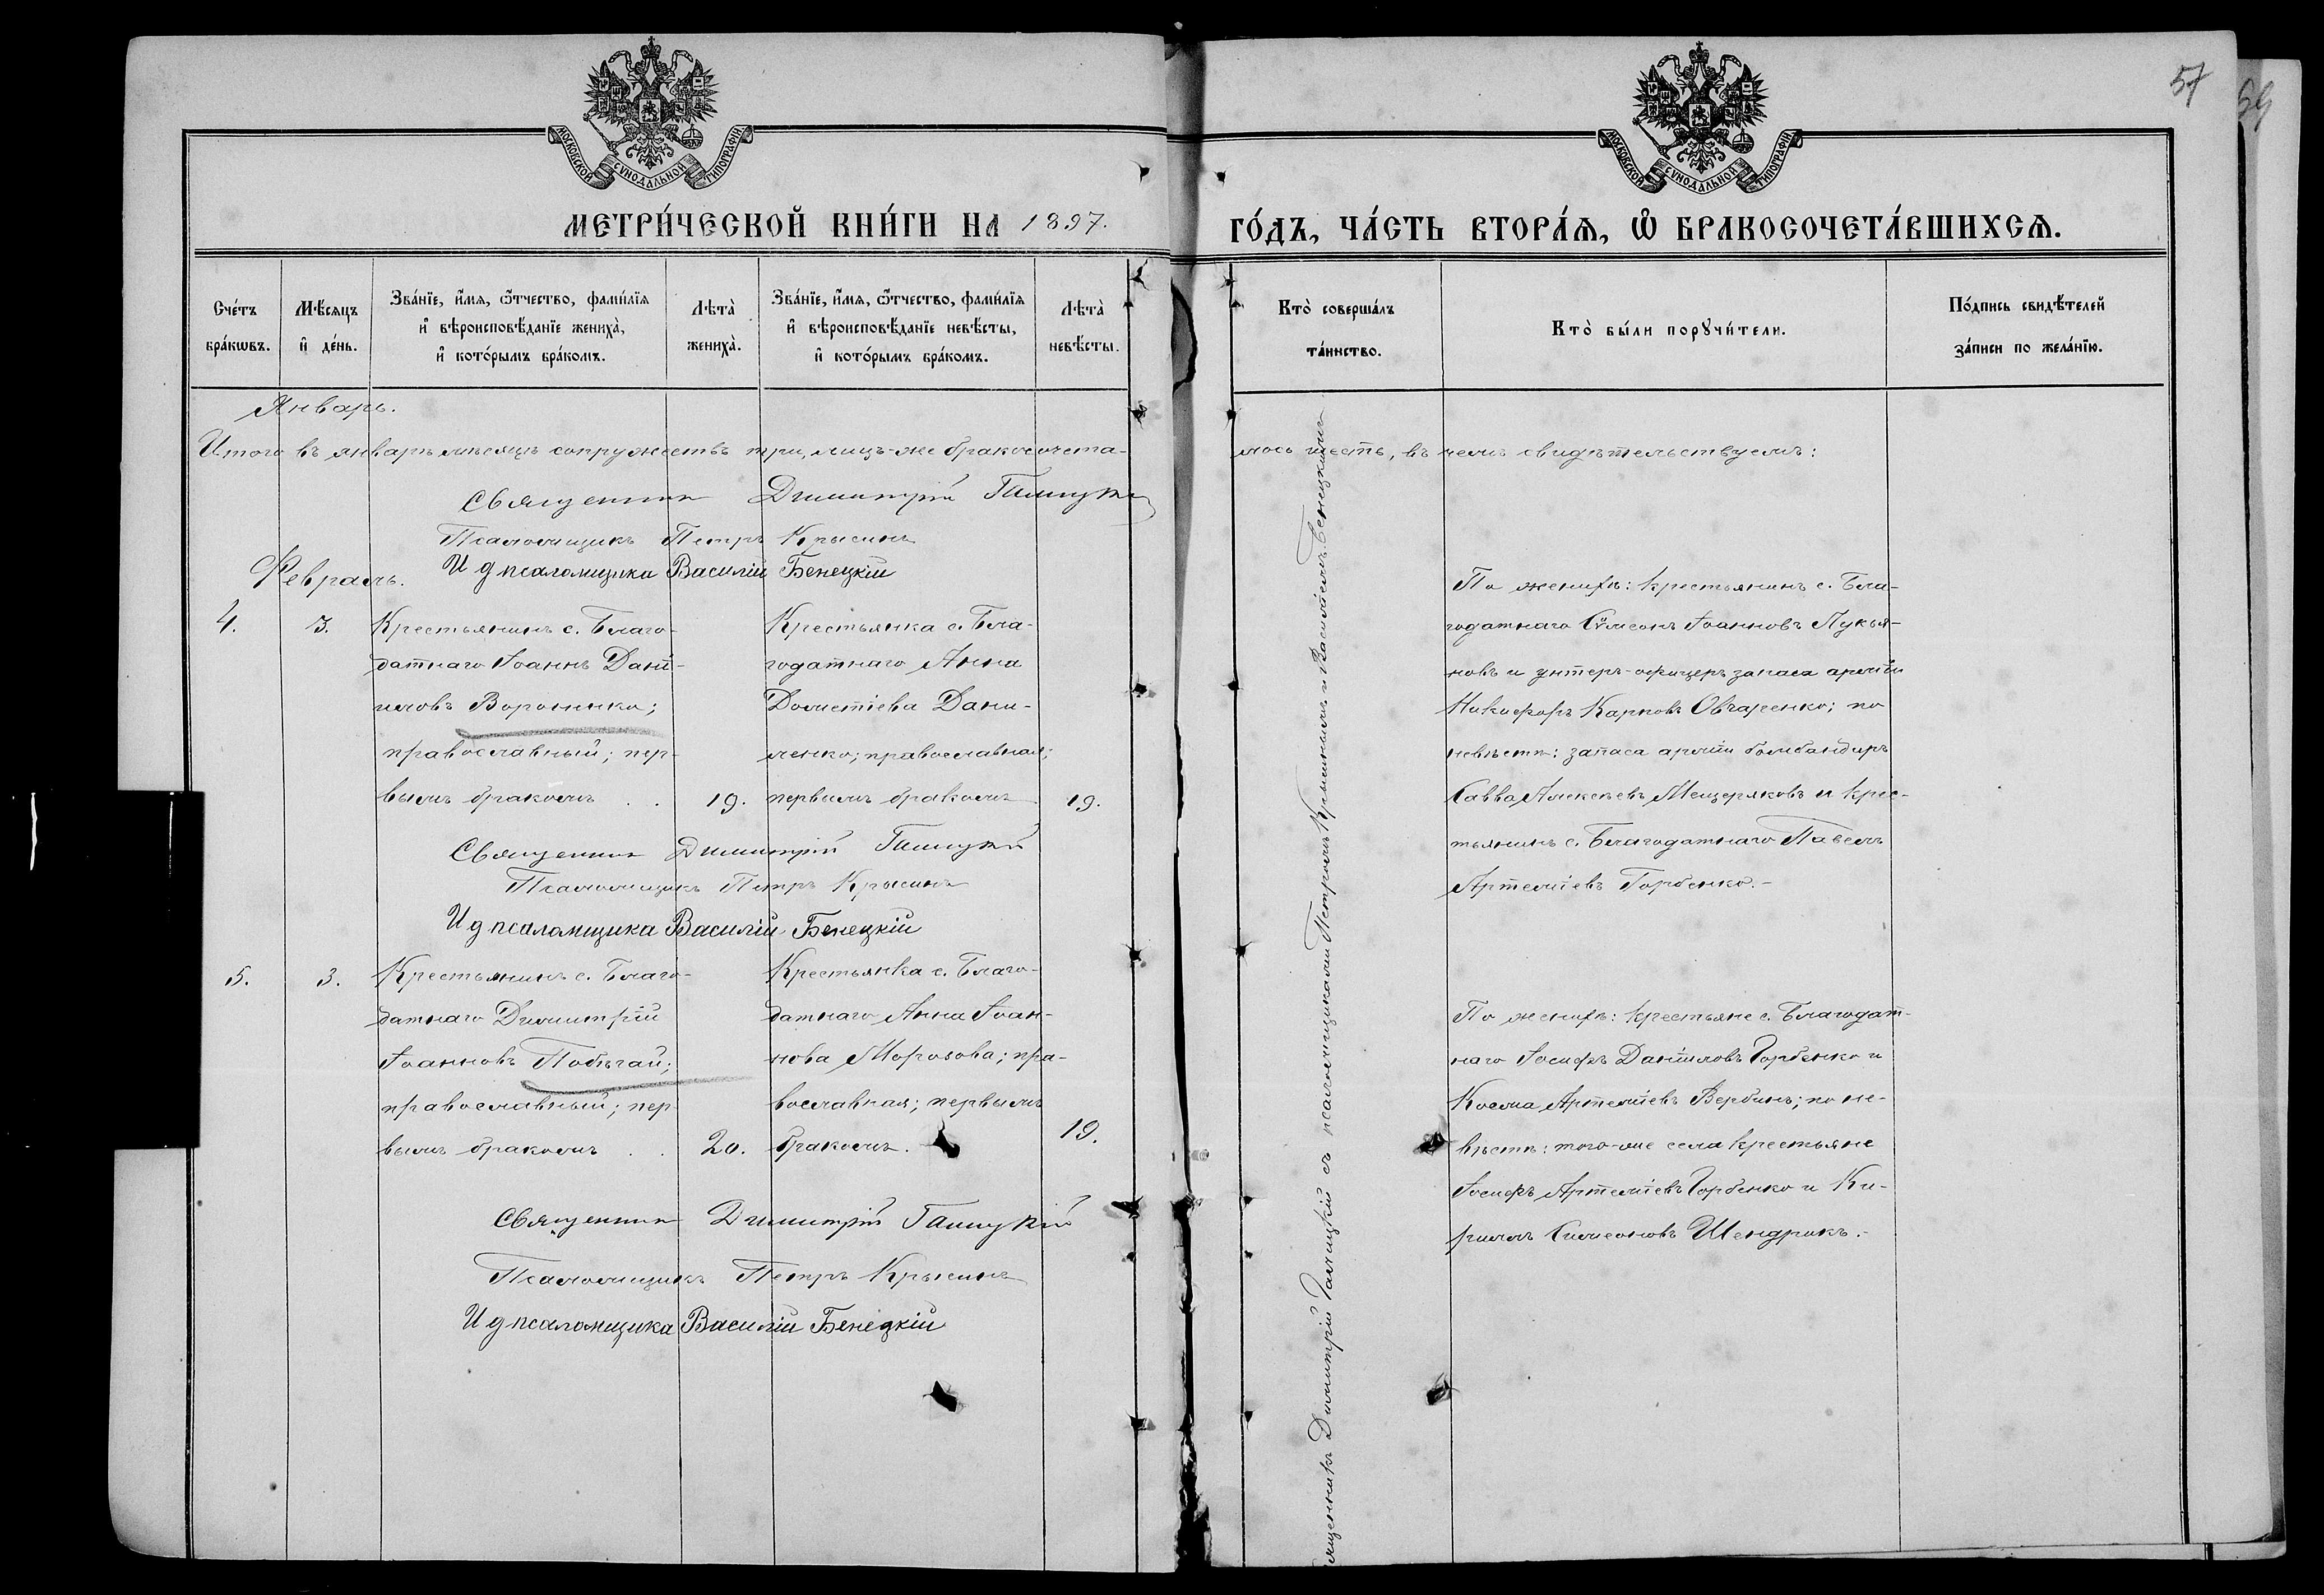 57
69
МОСКОВСКОЙ СѴНОДАЛЬНОЙ ТИПОГРАФІИ
МОСКОВСКОЙ СѴНОДАЛЬНОЙ ТИПОГРАФІИ
МЕТРИ́ЧЕСКОЙ КНИ́ГИ НА 1897.
ГО́ДЪ, ЧА́СТЬ ВТОРА́Ѧ, Ѽ БРАКОСОЧЕТА́ВШИХСѦ.
Сче́тъ бра́кѡвъ.
Мѣ́сѧцъ и҆ де́нь.
Зва́нїе, и҆́мѧ, ѻ҆́тчество, фами́лїѧ и҆ вѣроисповѣ́данїе жениха̀, и҆ кото́рымъ бра́комъ.
Лѣта̀ жениха̀.
Зва́нїе, и҆́мѧ, ѻ҆́тчество, фами́лїѧ и҆ вѣроисповѣ́данїе невѣ́сты, и҆ кото́рымъ бра́комъ.
Лѣта̀ невѣ́сты.
Кто̀ соверша́лъ та́инство.
Кто̀ бы́ли порꙋчи́тели.
По́дпись свидѣ́телей за́писи по жела́нїю.
Январь.
Итого въ январѣ мѣсяцѣ супружествъ три, лицъ-же бракосочета-
лось шесть, въ чемъ свидѣтельствуемъ:
Священник Димитрій Галицкій
Псаломщикъ Петръ Крысинъ
И д псаломщика Василій Бенецкій
Февраль.
4.
3.
Крестьянинъ с. Благо-
датнаго Іоаннъ Дані-
иловъ Воронико;
православный; пер-
вымъ бракомъ . .
19.
Крестьянка с. Бла-
годатнаго Анна
Дометіева Дани-
ленко; православная;
первымъ бракомъ
19.
По женихѣ: крестьянинъ с. Бла-
годатнаго Сѵмеонъ Іоанновъ Лукья-
новъ и унтеръ-офицеръ запаса арміи
Никифоръ Карповъ Овчаренко; по
невѣстѣ: запаса арміи бомбандиръ
Савва Алексѣевъ Мещеряковъ и крес-
тьянинъ с. Благодатнаго Павелъ
Артеміевъ Горбенко.-
Священник Димитрій Галицкій
Псаломщикъ Петръ Крысинъ
И д псаломщика Василій Бенецкій
5.
3.
Крестьянинъ с. Благо-
датнаго Димитрій
Іоанновъ Побѣгай;
православный; пер-
вымъ бракомъ . .
20.
Крестьянка с. Благо-
датнаго Анна Іоан-
нова Морозова; пра-
вославная; первымъ
бракомъ.
19.
По женихѣ: крестьяне с. Благодат-
наго Іосифъ Даніиловъ Горбенко и
Косма Артеміевъ Вербинъ; по не-
вѣстѣ: того-же села крестьяне
Іосифъ Артеміевъ Горбенко и Ки-
риллъ Симеоновъ Шендрикъ.-
Священник Димитрій Галицкій
Псаломщикъ Петръ Крысинъ
И д псаломщика Василій Бенецкій
Димитрій Галицкій съ псаломщиками Петромъ Крысинымъ и Василіемъ Бенецкимъ